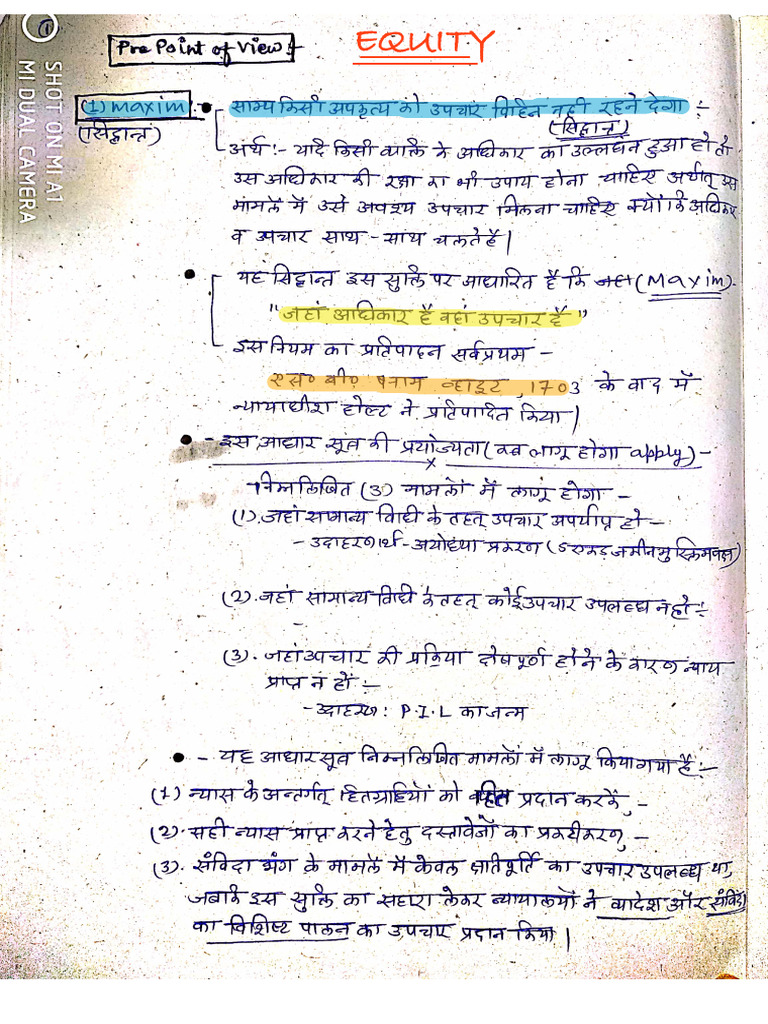 1
SHOT ON MI A1
MI DUAL CAMERA
Pre Point of View :-
EQUITY
(1) maxim
(सिद्धान्त)
साम्य किसी अपकृत्य को उपचार विहिन नहीं रहने देगा :-
(सिद्धान्त)
अर्थ :- यदि किसी व्यक्ति के अधिकार का उल्लंघन हुआ हो तो
उस अधिकार की रक्षा का भी उपाय होना चाहिए अर्थात् उस
मामलें में उसे अवश्य उपचार मिलना चाहिए क्यों कि अधिकार
व उपचार साथ - साथ चलते है।
यह सिद्धान्त इस सुक्ति पर आधारित है कि (Maxim).
"जहां अधिकार है वहां उपचार है"
इस नियम का प्रतिपादन सर्वप्रथम -
एस० बी० बनाम व्हाइट, 1703 के वाद में
न्यायाधीश होल्ट ने प्रतिपादित किया।
- इस आधार सूत्र की प्रयोज्यता (कब लागू होगा apply) -
निम्नलिखित (3) मामलों में लागूं होगा -
(1). जहां सामान्य विधी के तहत् उपचार अपर्याप्त हो -
- उदाहरणार्थ - अयोध्या प्रकरण (5 एकड़ जमीन मुस्लिम पक्ष)
(2). जहां सामान्य विधी के तहत् कोई उपचार उपलब्ध न हो :-
(3). जहां उपचार की प्रक्रिया दोषपूर्ण होने के कारण न्याय
प्राप्त न हो :-
- उदाहरण : P.I.L का जन्म
- यह आधार सूत्र निम्नलिखित मामलों में लागू किया गया है :-
(1) न्यास के अन्तर्गत् हितग्राहियों को हित प्रदान करके, -
(2). सही न्यास प्राप्त करने हेतु दस्तावेजों का प्रकटीकरण, -
(3). संविदा भंग के मामलें में केवल क्षतिपूर्ति का उपचार उपलब्ध था,
जबकि इस सुक्ति का सहारा लेकर न्यायालयों ने व्यादेश और संविदा
का विशिष्ट पालन का उपचार प्रदान किया।